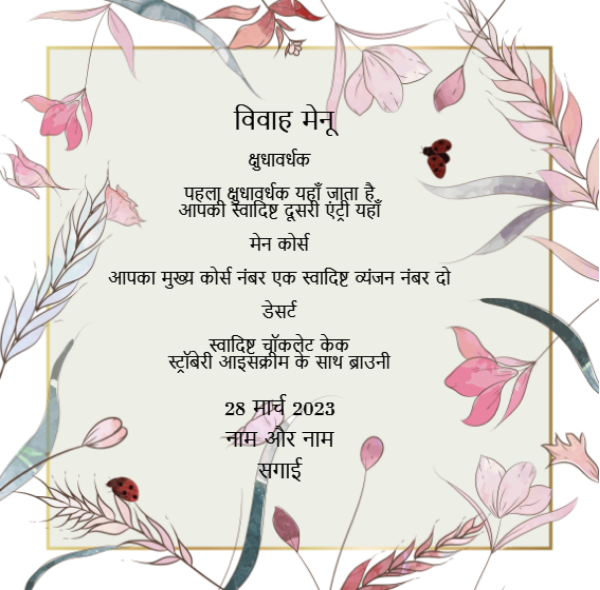 विवाह मेनू
क्षुधावर्धक
पहला क्षुधावर्धक यहाँ जाता है
आपकी स्वादिष्ट दूसरी एंट्री यहाँ
मेन कोर्स
आपका मुख्य कोर्स नंबर एक स्वादिष्ट व्यंजन नंबर दो
डेसर्ट
स्वादिष्ट चॉकलेट केक
स्ट्रॉबेरी आइसक्रीम के साथ ब्राउनी
28 मार्च 2023
नाम और नाम
सगाई